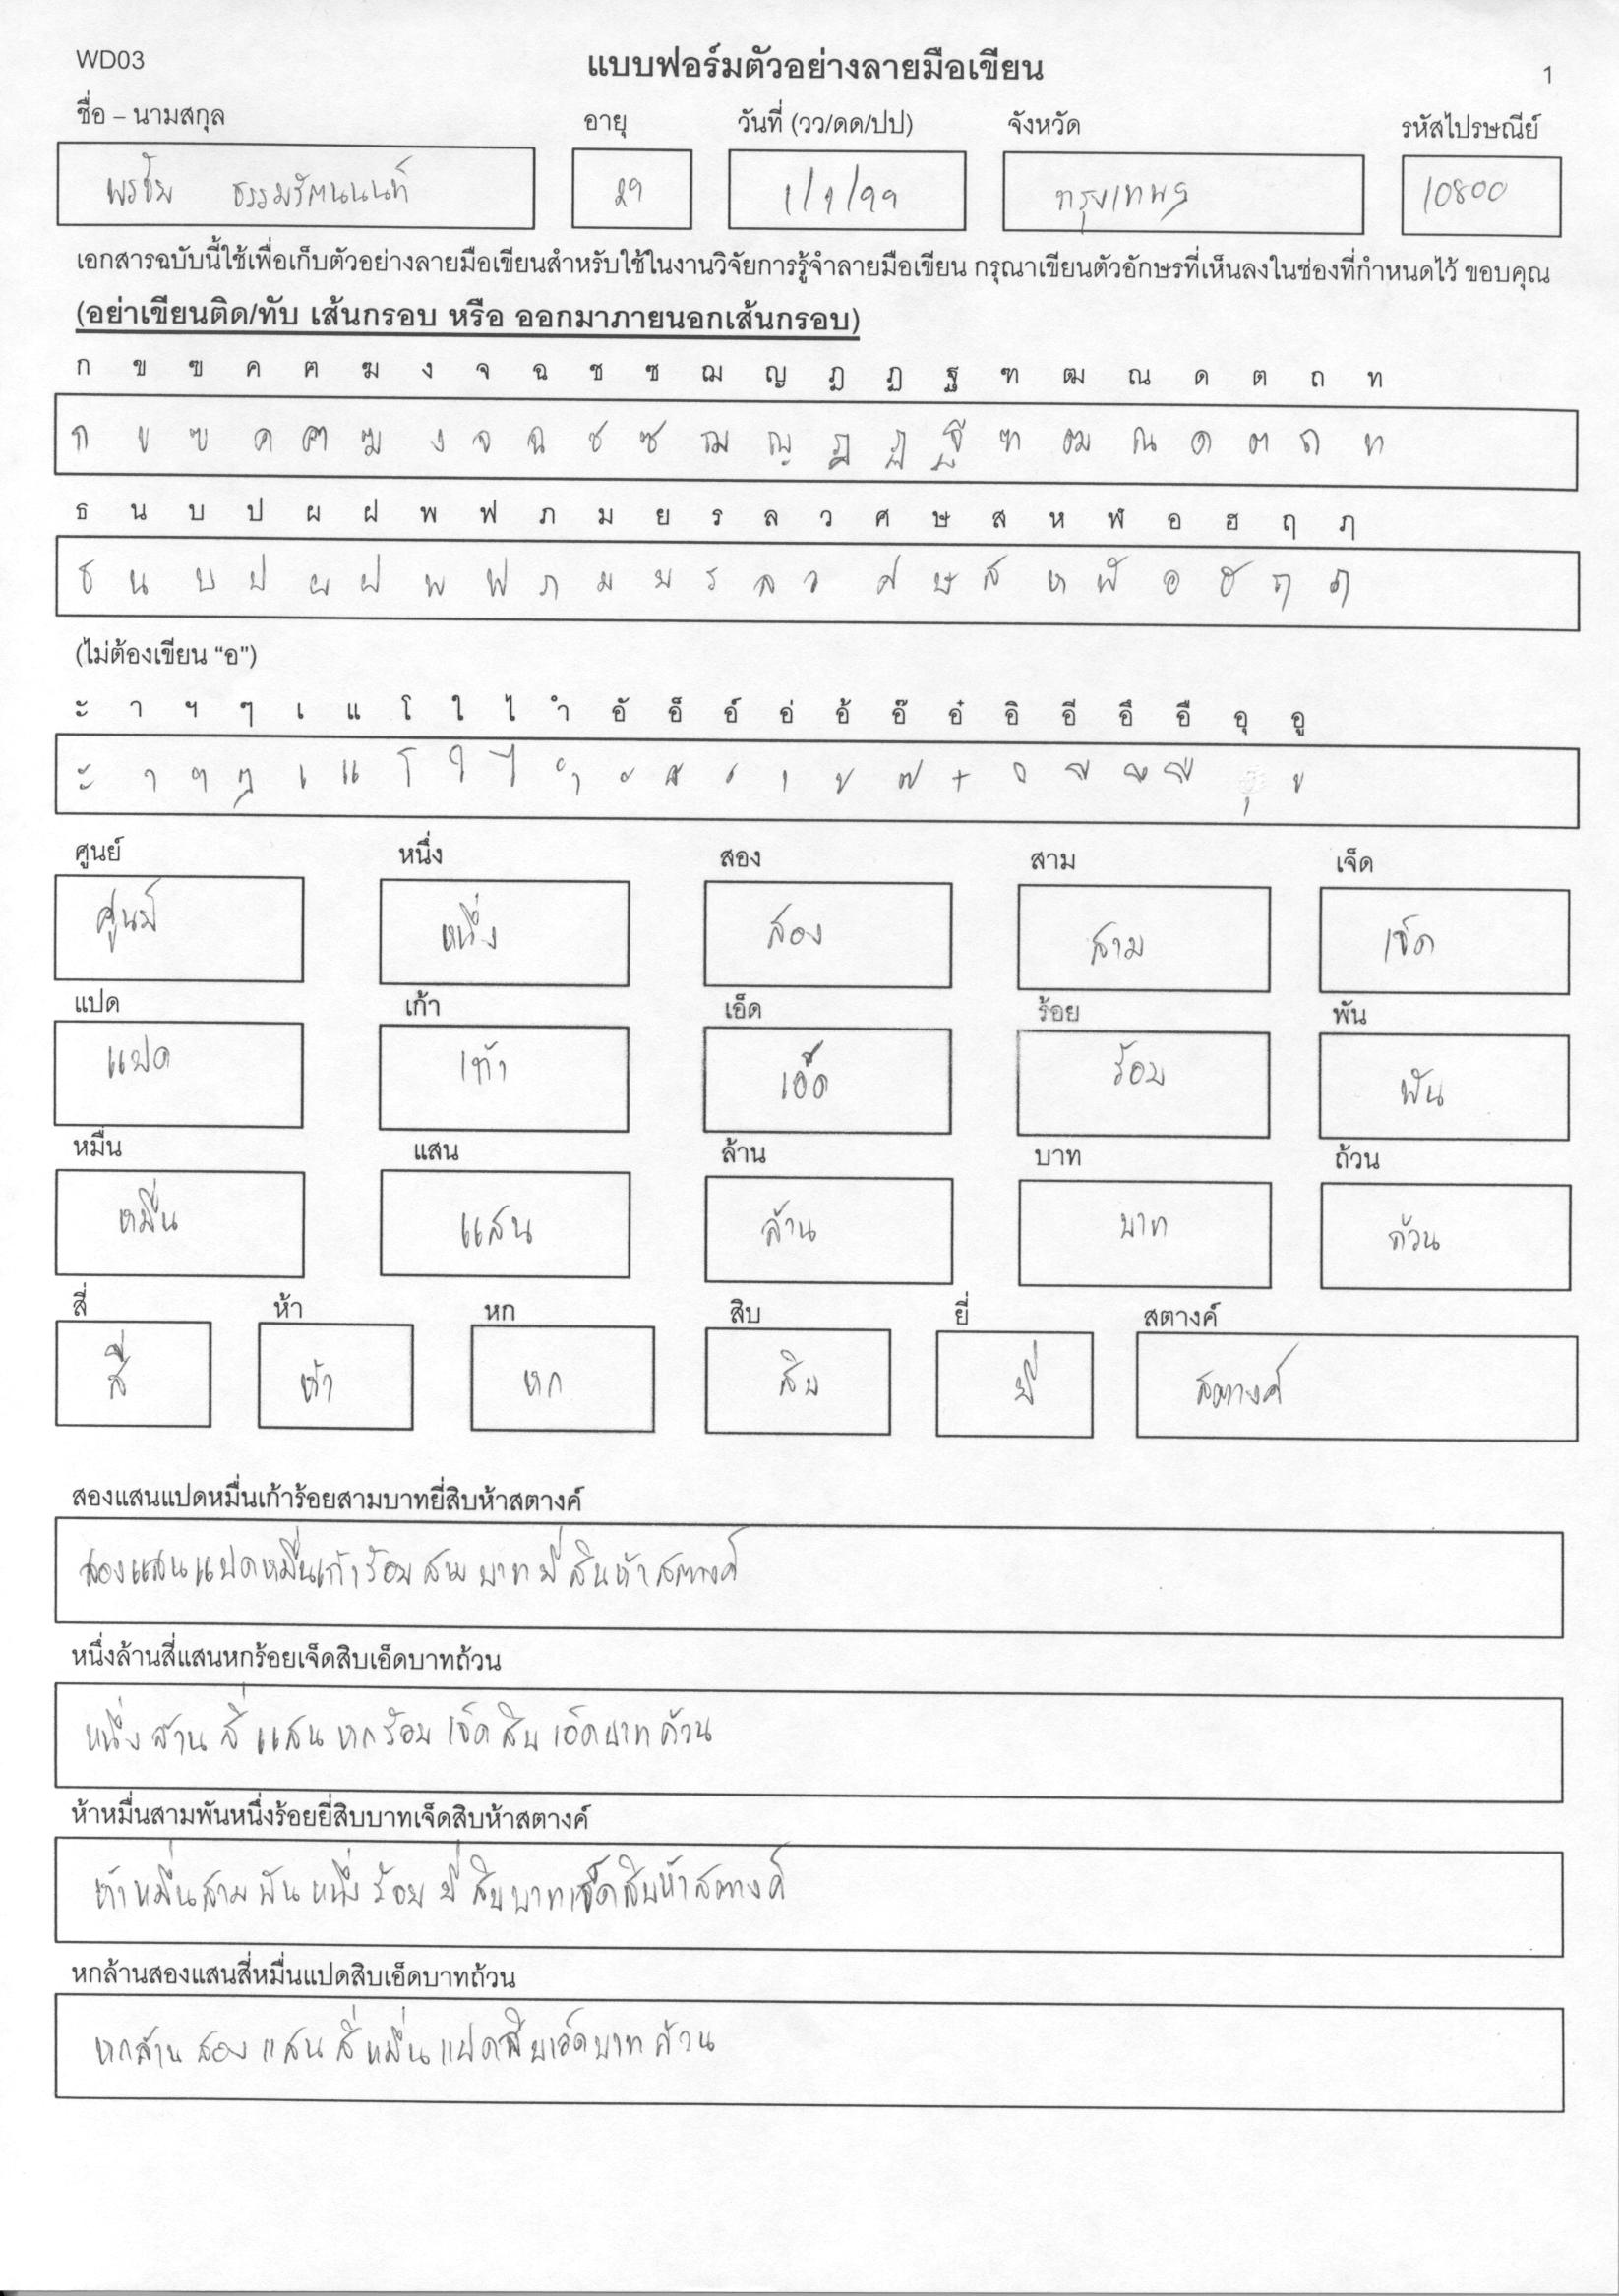 WD03 แบบฟอร์มตัวอย่างลายมือเขียน 1
ชื่อ – นามสกุล อายุ วันที่ (วว/ดด/ปป) จังหวัด รหัสไปรษณีย์
พรชัย ธรรมรัตนนนท์ 29 1/1/99 กรุงเทพฯ 10800
เอกสารฉบับนี้ใช้เพื่อเก็บตัวอย่างลายมือเขียนสำหรับใช้ในงานวิจัยการรู้จำลายมือเขียน กรุณาเขียนตัวอักษรที่เห็นลงในช่องที่กำหนดไว้ ขอบคุณ
(อย่าเขียนติด/ทับ เส้นกรอบ หรือ ออกมาภายนอกเส้นกรอบ)
ก ข ฃ ค ฅ ฆ ง จ ฉ ช ซ ฌ ญ ฎ ฏ ฐ ฑ ฒ ณ ด ต ถ ท
ก ข ฃ ค ฅ ฆ ง จ ฉ ช ซ ฌ ญ ฎ ฏ ฐ ฑ ฒ ณ ด ต ถ ท
ธ น บ ป ผ ฝ พ ฟ ภ ม ย ร ล ว ศ ษ ส ห ฬ อ ฮ ฤ ฦ
ธ น บ ป ผ ฝ พ ฟ ภ ม ย ร ล ว ศ ษ ส ห ฬ อ ฮ ฤ ฦ
(ไม่ต้องเขียน “อ”)
ะ า ฯ ๆ เ แ โ ใ ไ ำ อั อ็ อ์ อ่ อ้ อ๊ อ๋ อิ อี อึ อื อุ อู
ะ า ฯ ๆ เ แ โ ใ ไ ำ ั ็ ์ ่ ้ ๊ ๋ ิ ี ึ ื ุ ู
ศูนย์ หนึ่ง สอง สาม เจ็ด
ศูนย์ หนึ่ง สอง สาม เจ็ด
แปด เก้า เอ็ด ร้อย พัน
แปด เก้า เอ็ด ร้อย พัน
หมื่น แสน ล้าน บาท ถ้วน
หมื่น แสน ล้าน บาท ถ้วน
สี่ ห้า หก สิบ ยี่ สตางค์
สี่ ห้า หก สิบ ยี่ สตางค์
สองแสนแปดหมื่นเก้าร้อยสามบาทยี่สิบห้าสตางค์
สองแสนแปดหมื่นเก้าร้อยสามบาทยี่สิบห้าสตางค์
หนึ่งล้านสี่แสนหกร้อยเจ็ดสิบเอ็ดบาทถ้วน
หนึ่งล้านสี่แสนหกร้อยเจ็ดสิบเอ็ดบาทถ้วน
ห้าหมื่นสามพันหนึ่งร้อยยี่สิบบาทเจ็ดสิบห้าสตางค์
ห้าหมื่นสามพันหนึ่งร้อยยี่สิบบาทเจ็ดสิบห้าสตางค์
หกล้านสองแสนสี่หมื่นแปดสิบเอ็ดบาทถ้วน
หกล้านสองแสนสี่หมื่นแปดสิบเอ็ดบาทถ้วน